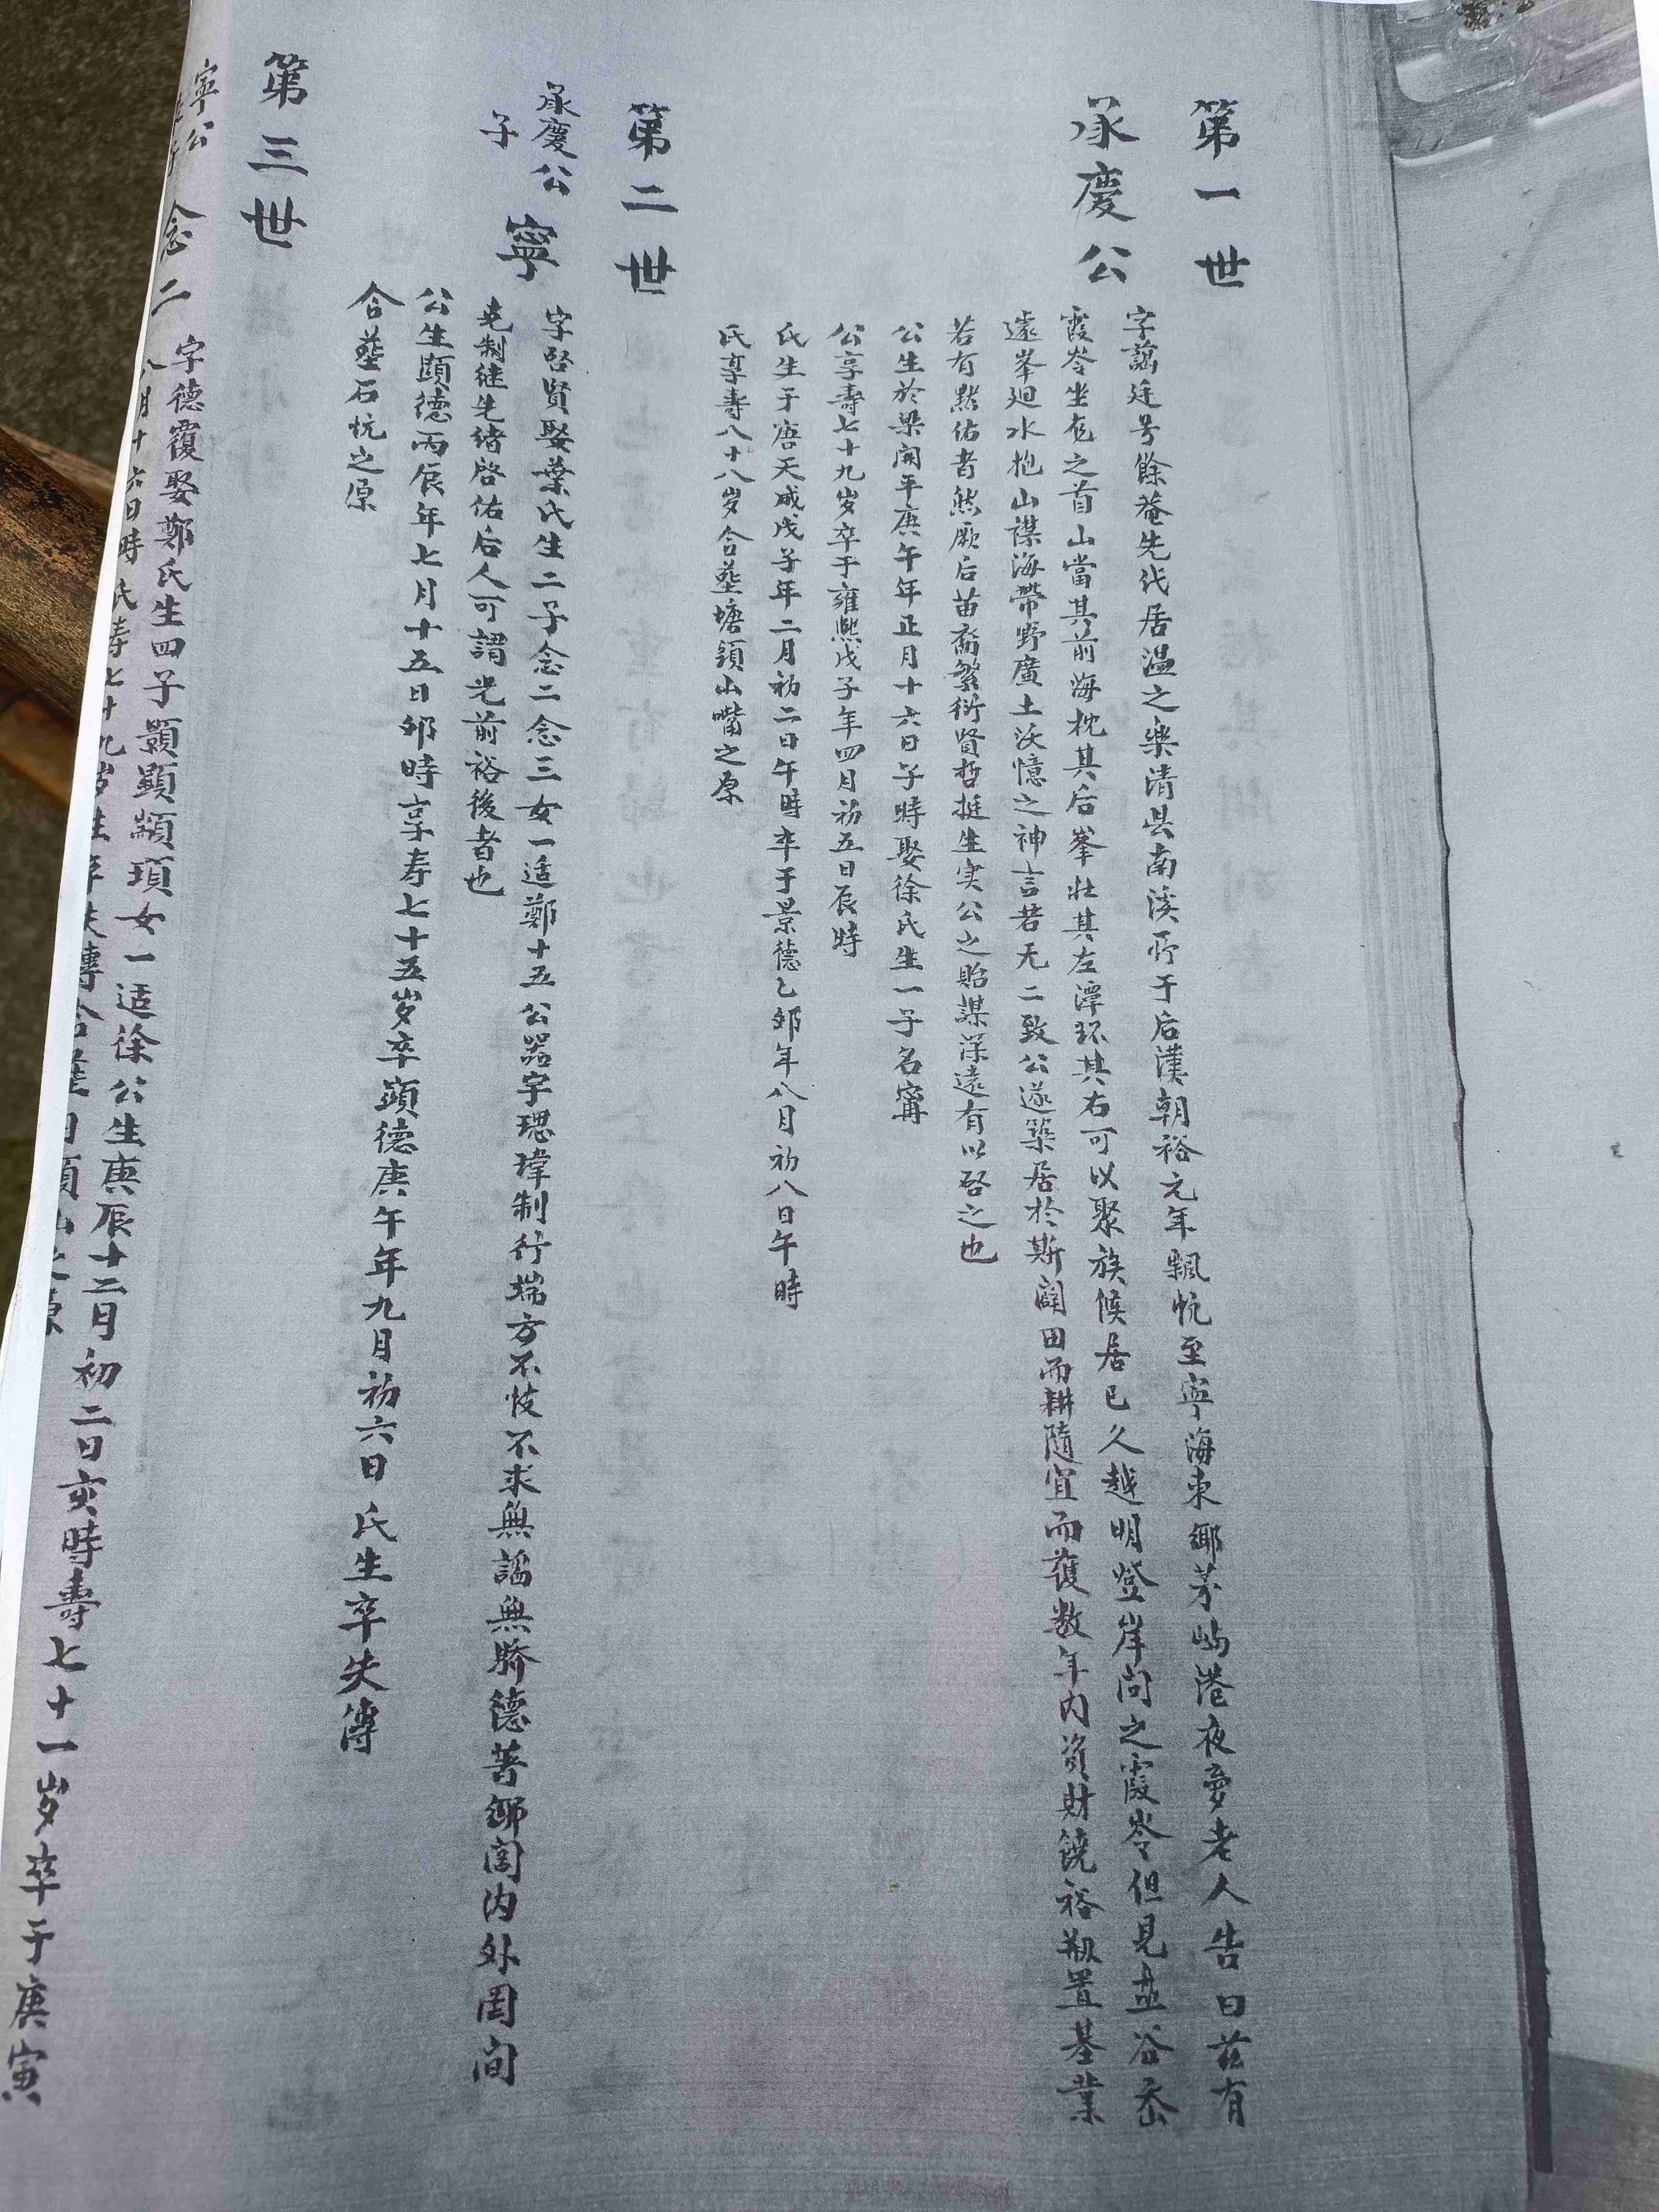 第一世
承慶公
字謁廷号餘菴先代居溫之樂清县南溪于后漢朝裕元年飄帆至寧海東鄉茅屿港夜夢老人告曰茲有
霞岺坐龙之首山當其前海枕其后峯壯其左潭环其右可以聚族候居已久越明登岸问之霞岺但见盘谷岙
遠峯廻水抱山襟海帶野廣土沃憶之神言若无二致公遂築居於斯闢田而耕隨宜而穫数年内资財饒裕瓶置基業
若有默佑者然厥后苗裔繁衍賢哲挺生实公之貽謀深遠有以啓之也
公生於梁開平庚午年正月十六日子時娶徐氏生一子名寗
公享壽七十九岁卒于雍熙戊子年四月初五日辰時
氏生于唐天成戊子年二月初二日午時卒于景德乙夘年八月初八日午時
氏享壽八十八岁合塟塘頭山嘴之原
第二世
承慶公
子
寧
字啓賢娶葉氏生二子念二念三女一适鄭十五公器宇瑰瑋制行端方不忮不求無謟無驕德著鄉闾内外囯间
克制继先绪啓佑后人可謂光前裕後者也
公生顕德丙辰年七月十五日夘時享寿七十五岁卒顕德庚午年九月初六日氏生卒失傳
合塟石忼之原
第三世
寧公
念二
字德覆娶鄭氏生四子顥顯頴頊女一适徐公生庚辰十二月初二日亥時壽七十一岁卒于庚寅
八月十六日時氏寿七十九岁生卒失傳合塟